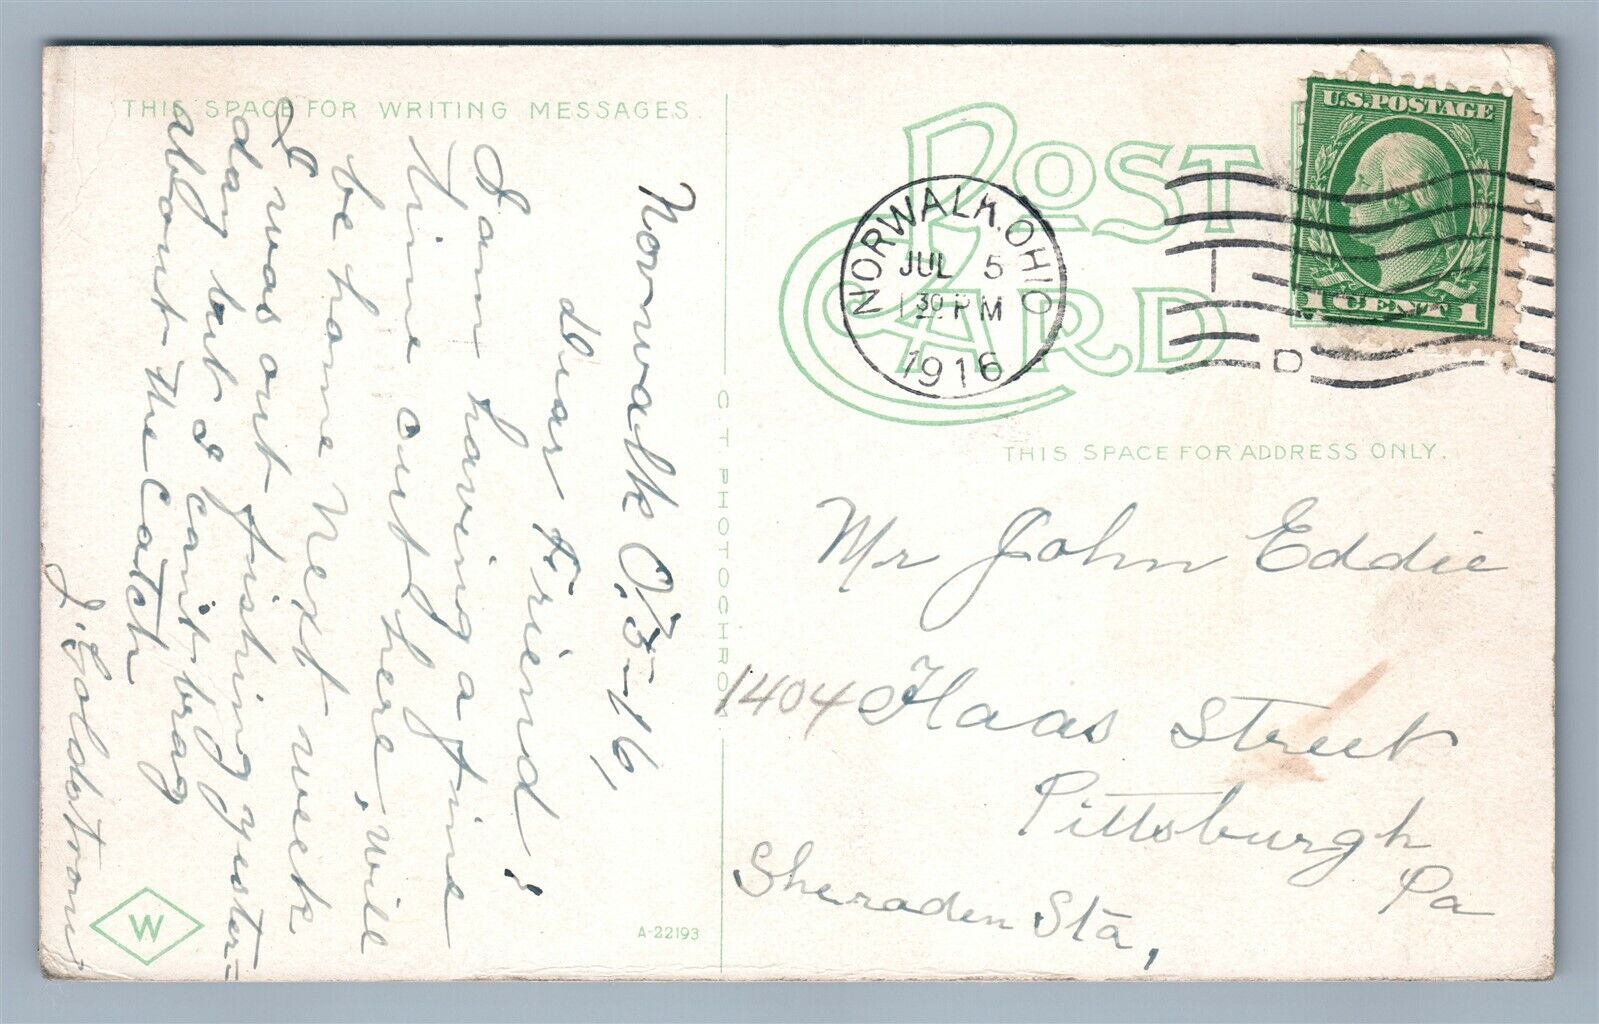 THIS SPACE FOR WRITING MESSAGES.
Norwalk O. 7/5-16,
Dear Friend;
I am having a fine
time out here, will
be home next week
I was out fishing yester=
day but I can't brag
about the catch
J. Goldstrom
W
A-22193
C T PHOTOCHROM
POST CARD
NORWALK, OHIO
JUL 5
1 30 PM
1916
1
D
U.S. POSTAGE
1 CENT 1
THIS SPACE FOR ADDRESS ONLY.
Mr John Eddie
1404 Haas Street
Pittsburgh
Pa
Sheraden Sta,